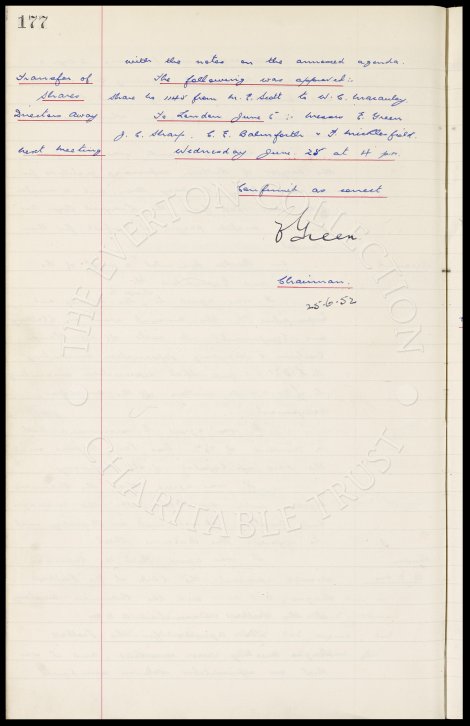 177
with the notes on the annexed agenda.
Transfer of The following was approved:-
Shares Share No 1145 from M. E. Scott to W. C. Macauley
Directors Away To London June 5:- Messrs E Green
J. C. Sharp. C. E. Balmforth & F Micklesfield.
next meeting Wednesday June 25 at 4 pm.
Confirmed as correct
Green
Chairman.
25-6-52
THE EVERTON COLLECTION
CHARITABLE TRUST